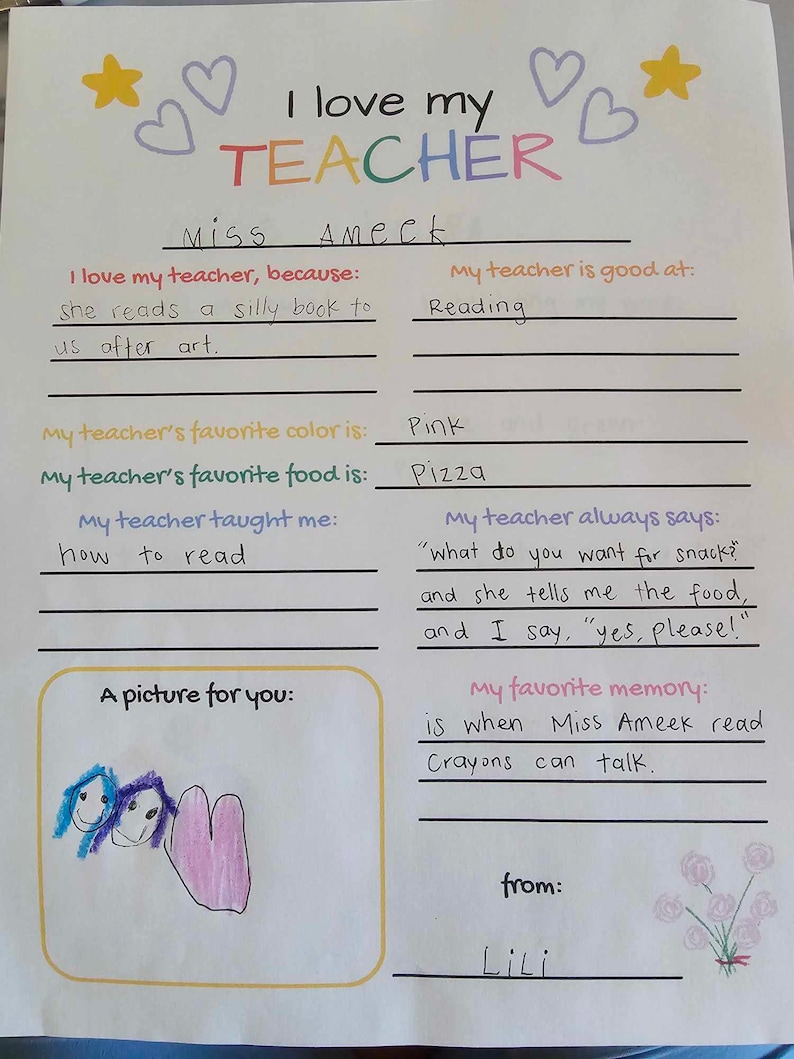 I love my
TEACHER
Miss Ameek
I love my teacher, because:
she reads a silly book to
us after art.
My teacher is good at:
Reading
My teacher's favorite color is: Pink
My teacher's favorite food is: Pizza
My teacher taught me:
how to read
My teacher always says:
"what do you want for snack?"
and she tells me the food,
and I say, "yes, please!"
A picture for you:
My favorite memory:
is when Miss Ameek read
Crayons can talk.
from:
LiLi